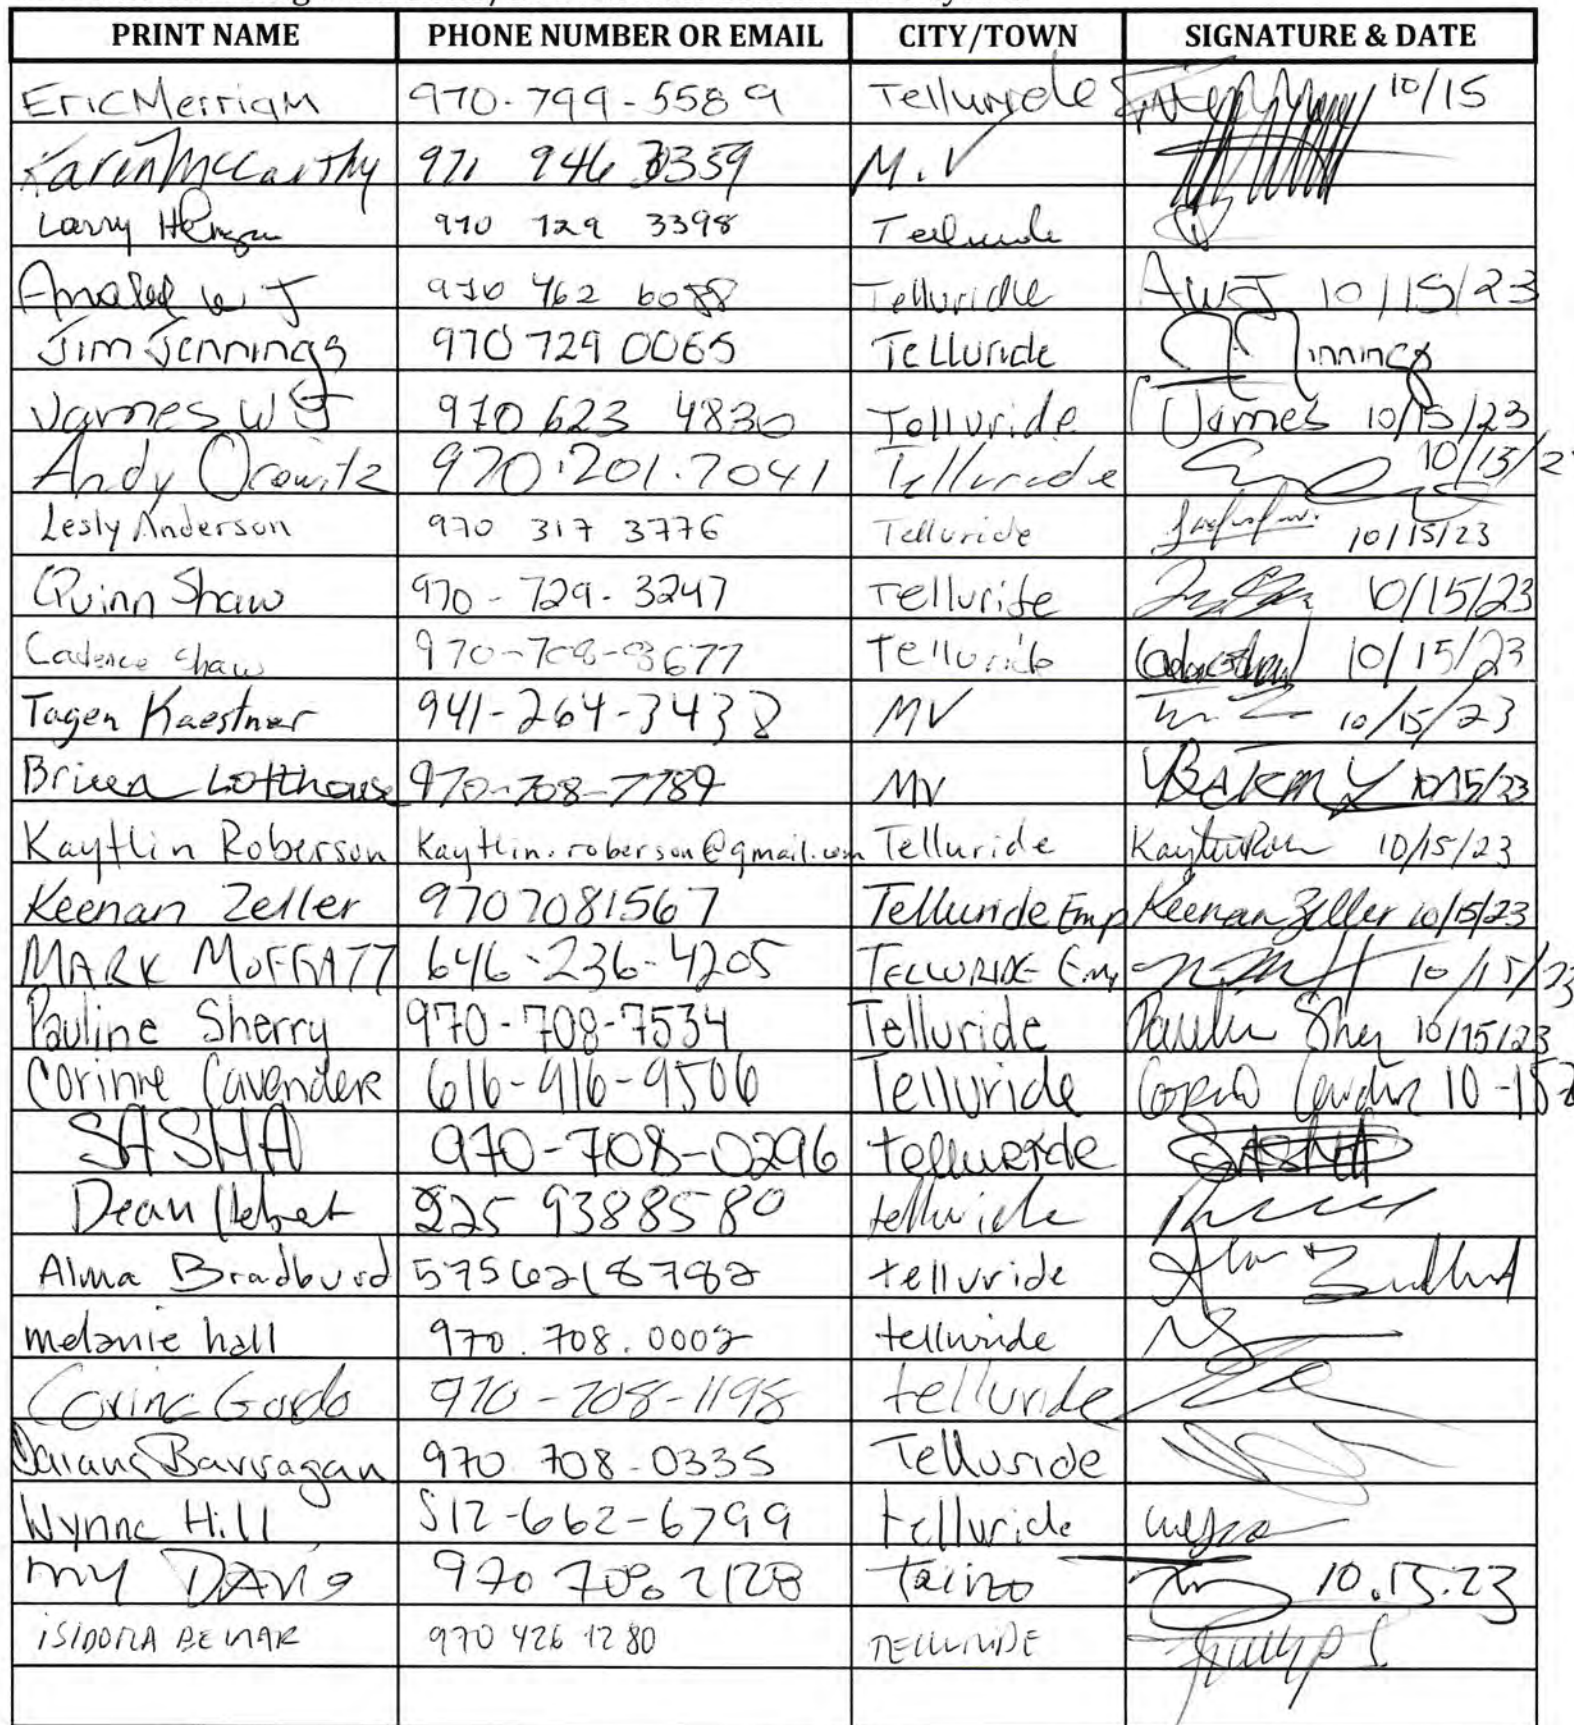 PRINT NAME PHONE NUMBER OR EMAIL CITY/TOWN SIGNATURE & DATE
Eric Merriam 970-799-5589 Telluride 10/15
Karen McCarthy 971 946 3359 M.V
Larry 970 729 3398 Telluride
W J 970 462 6088 Telluride AWJ 10/15/23
Jim Jennings 970 729 0065 Telluride J Jinnings
James W J 970 623 4830 Telluride James 10/15/23
Andy Orowitz 970.201.7041 Telluride 10/15/2
Lesly Anderson 970 317 3776 Telluride 10/15/23
Quinn Shaw 970-729-3247 Telluride 10/15/23
Cadence Shaw 970-708-8677 Telluride 10/15/23
Tagen Kaestner 941-264-3438 MV 10/15/23
Lofthouse 970-708-7789 MV 10/15/23
Kaytlin Roberson Kaytlin.roberson@gmail.com Telluride 10/15/23
Keenan Zeller 9707081567 Telluride Emp Keenan Zeller 10/15/23
MARK MOFFATT 646-236-4205 TELLURIDE Emp 10/15/23
Pauline Sherry 970-708-7534 Telluride 10/15/23
Corinne Cavender 616-916-9506 Telluride 10-15
SASHA 970-708-0296 telluride SASHA
Dean 225 9388580 telluride
Alma Bradburd 5756218782 telluride
melanie hall 970.708.0002 telluride
970-708-1198 telluride
Barragan 970 708-0335 Telluride
Wynne Hill 512-662-6799 telluride
my DAVIS 970 708 2128 10.15.23
ISIDORA 970 426 1280 TELLURIDE